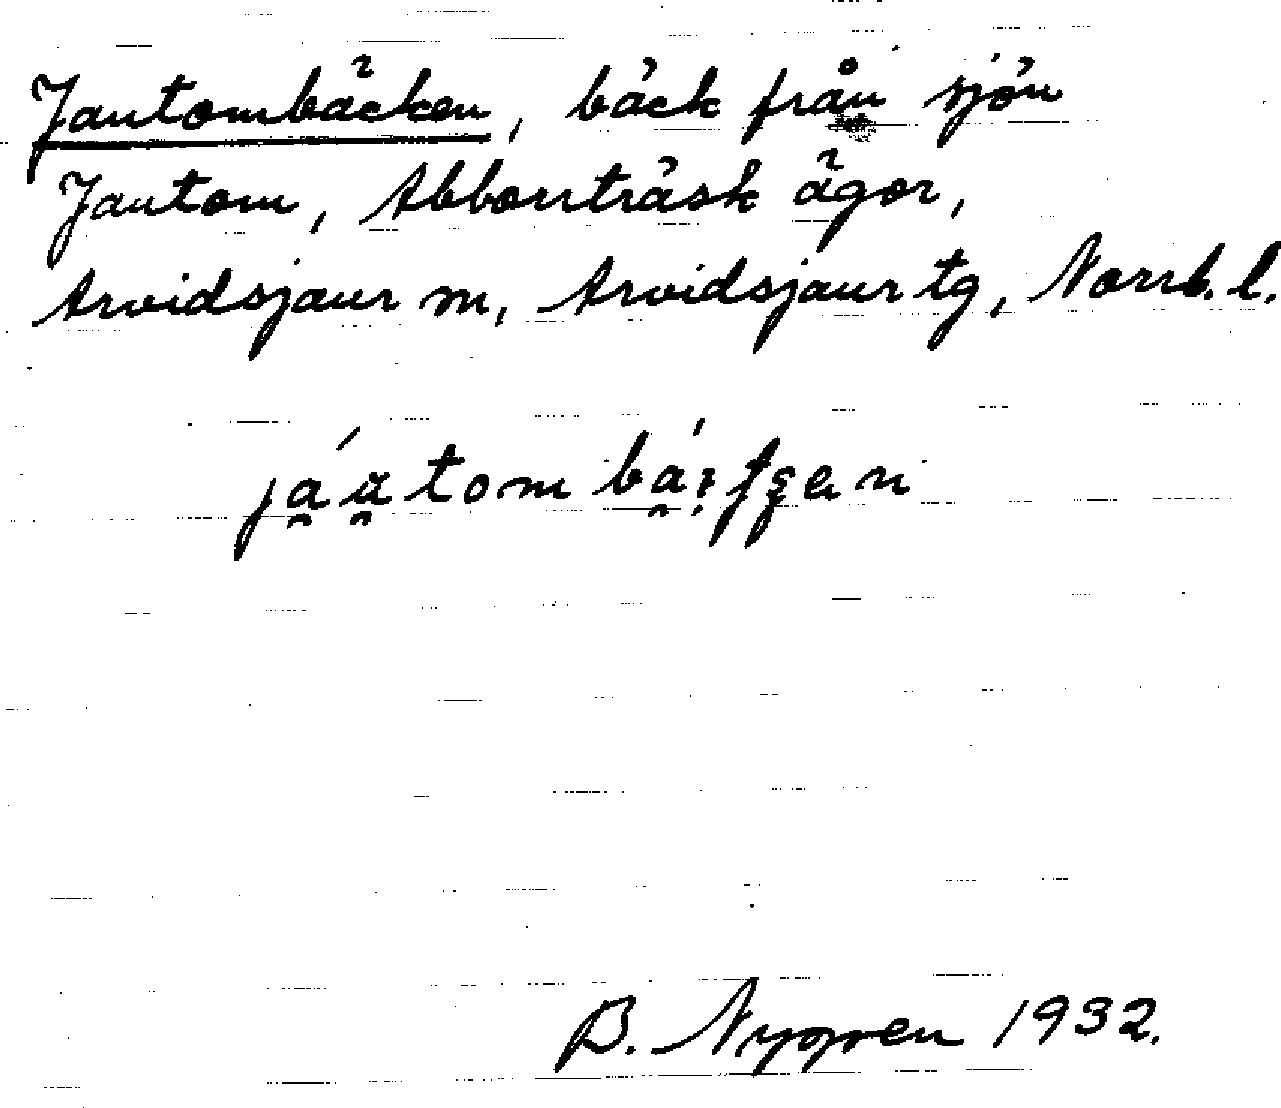 Jautombäcken, bäck från sjön
Jautom, Abborrträsk ägor,
Arvidsjaur sn, Arvidsjaur tg, Norrb. l.
B. Nygren 1932.